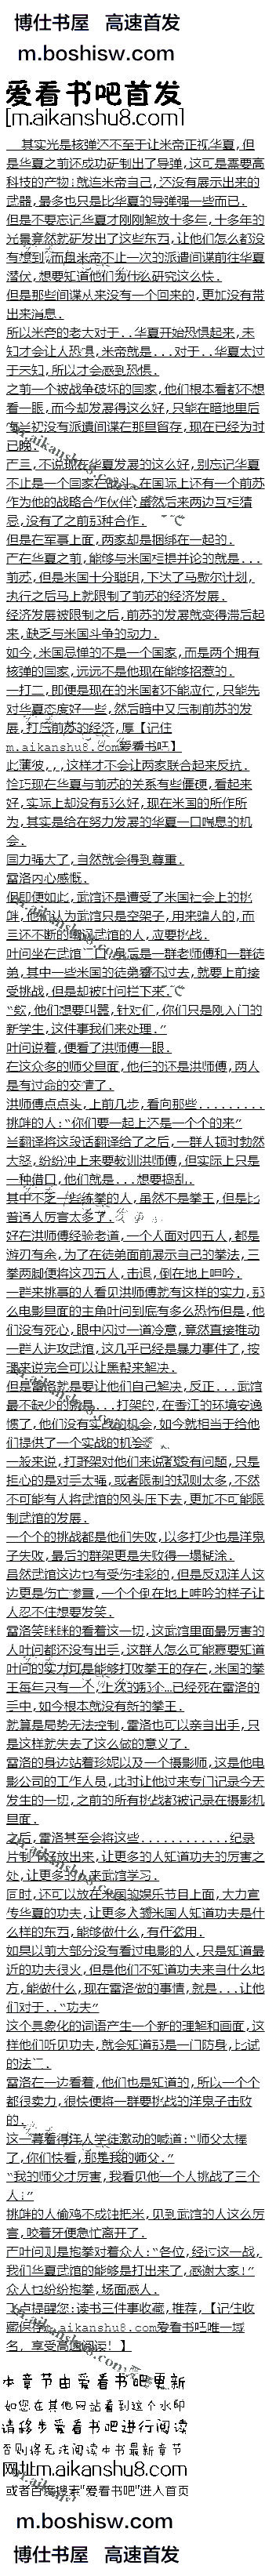 博仕书屋 高速首发
m.boshisw.com
爱看书吧首发
[m.aikanshu8.com]
其实光是核弹还不至于让米帝正视华夏,但
是华夏之前还成功研制出了导弹,这可是需要高
科技的产物!就连米帝自己,还没有展示出来的
武器,最多也只是比华夏的导弹强一些而已.
但是不要忘记华夏才刚刚解放十多年,十多年的
光景竟然就研发出了这些东西,让他们怎么都没
有想到,而且米帝不止一次的派遣间谍前往华夏
潜伏,想要知道他们为什么研究这么快.
但是那些间谍从来没有一个回来的,更加没有带
出来消息.
所以米帝的老大对于..华夏开始恐惧起来,未
知才会让人恐惧,米帝就是...对于..华夏太过
于未知,所以才会感到恐惧.
之前一个被战争破坏的国家,他们根本看都不想
看一眼,而今却发展得这么好,只能在暗地里后
悔当初没有派遣间谍在那里留存,现在已经为时
已晚.
再三,不说现在华夏发展的这么好,别忘记华夏
不止是一个国家在战斗,在国际上还有一个前苏
作为他的战略合作伙伴,虽然后来两边互相猜
忌,没有了之前那种合作.
但是在军事上面,两家却是捆绑在一起的.
而在华夏之前,能够与米国相提并论的就是...
前苏,但是米国十分聪明,下达了马歇尔计划,
执行之后马上就限制了前苏的经济发展.
经济发展被限制之后,前苏的发展就变得滞后起
来,缺乏与米国斗争的动力.
如今,米国忌惮的不是一个国家,而是两个拥有
核弹的国家,远远不是他现在能够招惹的.
一打二,即便是现在的米国都不能应付,只能先
对华夏态度好一些,然后暗中又压制前苏的发
展,打压前苏的经济,厚【记住
m.aikanshu8.com爱看书吧】
此薄彼,,,这样才不会让两家联合起来反抗.
恰巧现在华夏与前苏的关系有些僵硬,看起来
好,实际上却没有那么好,现在米国的所作所
为,其实是给在努力发展的华夏一口喘息的机
会.
国力强大了,自然就会得到尊重.
雷洛内心感慨.
但即便如此,武馆还是遭受了米国社会上的挑
衅,他们认为武馆只是空架子,用来骗人的,而
且还不断的叫嚣武馆的人,应要挑战.
叶问坐在武馆门口,身后是一群老师傅和一群徒
弟,其中一些米国的徒弟看不过去,就要上前接
受挑战,但是却被叶问拦下来.
“欸,他们想要叫嚣,针对们,你们只是刚入门的
新学生,这件事我们来处理.”
叶问说着,便看了洪师傅一眼.
在这众多的师父里面,他任的还是洪师傅,两人
是有过命的交情了.
洪师傅点点头,上前几步,看向那些.........
挑衅的人:“你们要一起上还是一个个的来”
当翻译将这段话翻译给了之后,一群人顿时勃然
大怒,纷纷冲上来要教训洪师傅,但实际上只是
一种借口,他们就是...想要捣乱.
其中不乏一些练拳的人,虽然不是拳王,但是比
普通人厉害太多了.
好在洪师傅经验老道,一个人面对四五人,都是
游刃有余,为了在徒弟面前展示自己的拳法,三
拳两脚便将这四五人,击退,倒在地上呻吟.
一群来挑事的人看见洪师傅就有这样的实力,那
么电影里面的主角叶问到底有多么恐怖但是,他
们没有死心,眼中闪过一道冷意,竟然直接推动
一群人进攻武馆,这几乎已经是暴力事件了,按
理来说完全可以让黑帮来解决.
但是雷洛就是要让他们自己解决,反正...武馆
最不缺少的就是...打架的,在香江的环境安逸
惯了,他们没有实战的机会,如今就相当于给他
们提供了一个实战的机会
一般来说,打野架对他们来说都没有问题,只是
担心的是对手太强,或者限制的规则太多,不然
不可能有人将武馆的风头压下去,更加不可能限
制武馆的发展.
一个个的挑战都是他们失败,以多打少也是洋鬼
子失败,最后的群架更是失败得一塌糊涂.
虽然武馆这边也有受伤挂彩的,但是反观洋人这
边更是伤亡惨重,一个个倒在地上呻吟的样子让
人忍不住想要发笑.
雷洛笑眯眯的看着这一切,这武馆里面最厉害的
人叶问都还没有出手,这群人怎么可能赢要知道
叶问的实力可是能够打败拳王的存在,米国的拳
王每年只有一个,今年的那个...已经死在雷洛的
手中,如今根本就没有新的拳王.
就算是局势无法控制,雷洛也可以亲自出手,只
是这样就失去了这么做的意义了.
雷洛的身边站着珍妮以及一个摄影师,这是他电
影公司的工作人员,此时让他过来专门记录今天
发生的一切,之前的所有挑战都被记录在摄影机
里面.
之后,雷洛甚至会将这些............纪录
片制作好放出来,让更多的人知道功夫的厉害之
处,让更多的人来武馆学习.
同时,还可以放在米国的娱乐节目上面,大力宣
传华夏的功夫,让更多人的米国人知道功夫是什
么样的东西,能够做什么,有什么用.
如果以前大部分没有看过电影的人,只是知道最
近的功夫很火,但是他们不知道功夫来自什么地
方,能做什么,现在雷洛做的事情,就是...让他
们对于..“功夫”
这个具象化的词语产生一个新的理解和画面,这
样他们听见功夫,就会知道那是一门防身,比试
的法门.
雷洛在一边看着,他们也是知道的,所以一个个
都很卖力,很快便将一群要挑战的洋鬼子击败
的.
这一幕看得洋人学徒激动的喊道:“师父太棒
了,你们快看,那是我的师父.”
“我的师父才厉害,我看见他一个人挑战了三个
人!”
挑衅的人偷鸡不成蚀把米,见到武馆的人这么厉
害,咬着牙便急忙离开了.
而叶问则是抱拳对着众人:“各位,经过这一战,
我们华夏武馆的能够是打出来了,感谢大家!”
众人也纷纷抱拳,场面感人.
飞卢提醒您:读书三件事收藏,推荐,【记住收
藏保存m.aikanshu8.com爱看书吧唯一域
名,享受高速阅读!】
本章节由爱看书吧更新
如您在其他网站看到这个水印
请移步爱看书吧进行阅读
否则将无法阅读本书最新章节
网址m.aikanshu8.com
或者百度搜索"爱看书吧"进入首页
m.boshisw.com
博仕书屋 高速首发